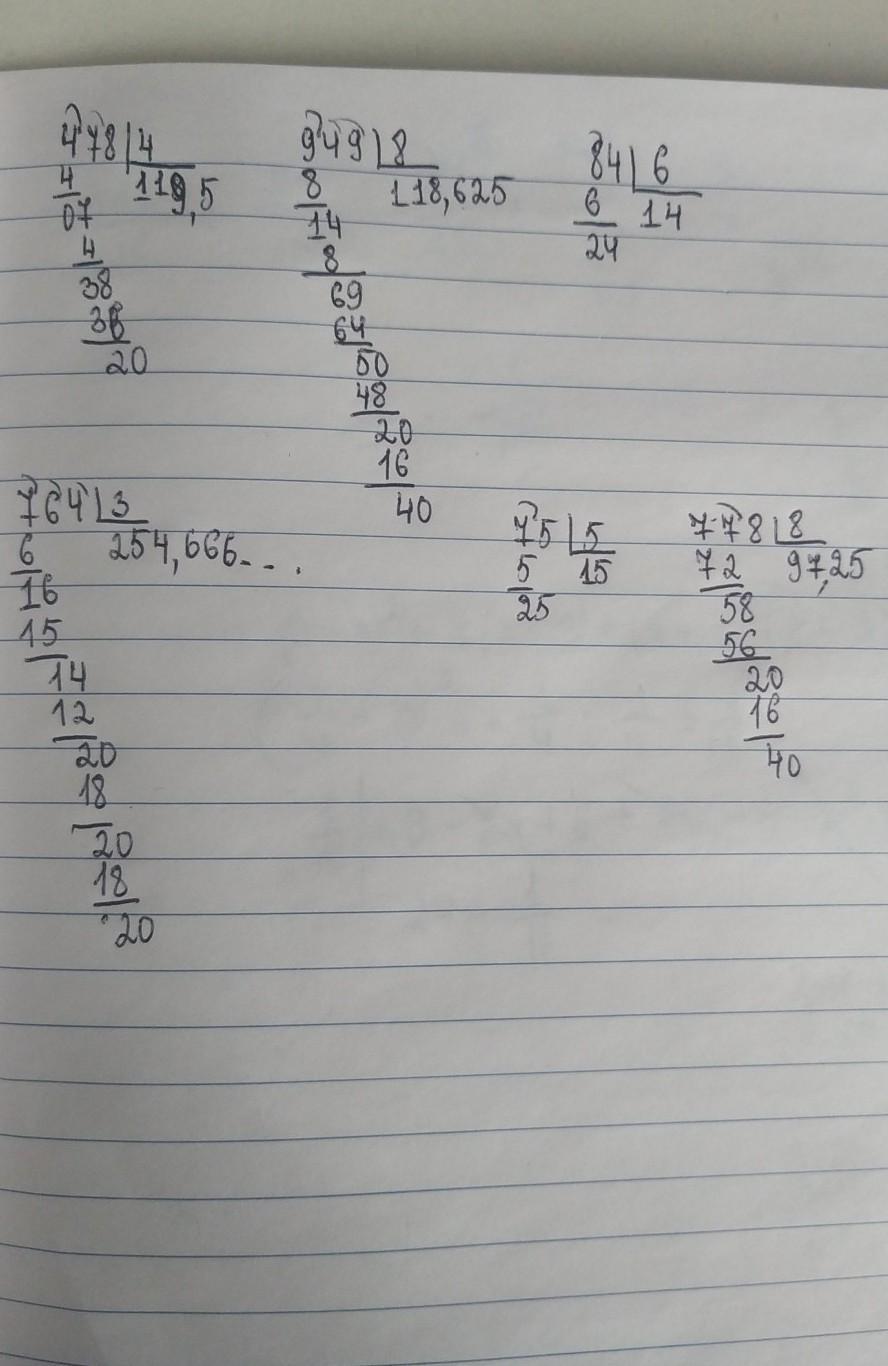 478 4
4 119,5
07
4
38
36
20
949 8
8 118,625
14
8
69
64
50
48
20
16
40
84 6
6 14
24
764 3
6 254,666....
16
15
14
12
20
18
20
18
20
75 5
5 15
25
778 8
72 97,25
58
56
20
16
40